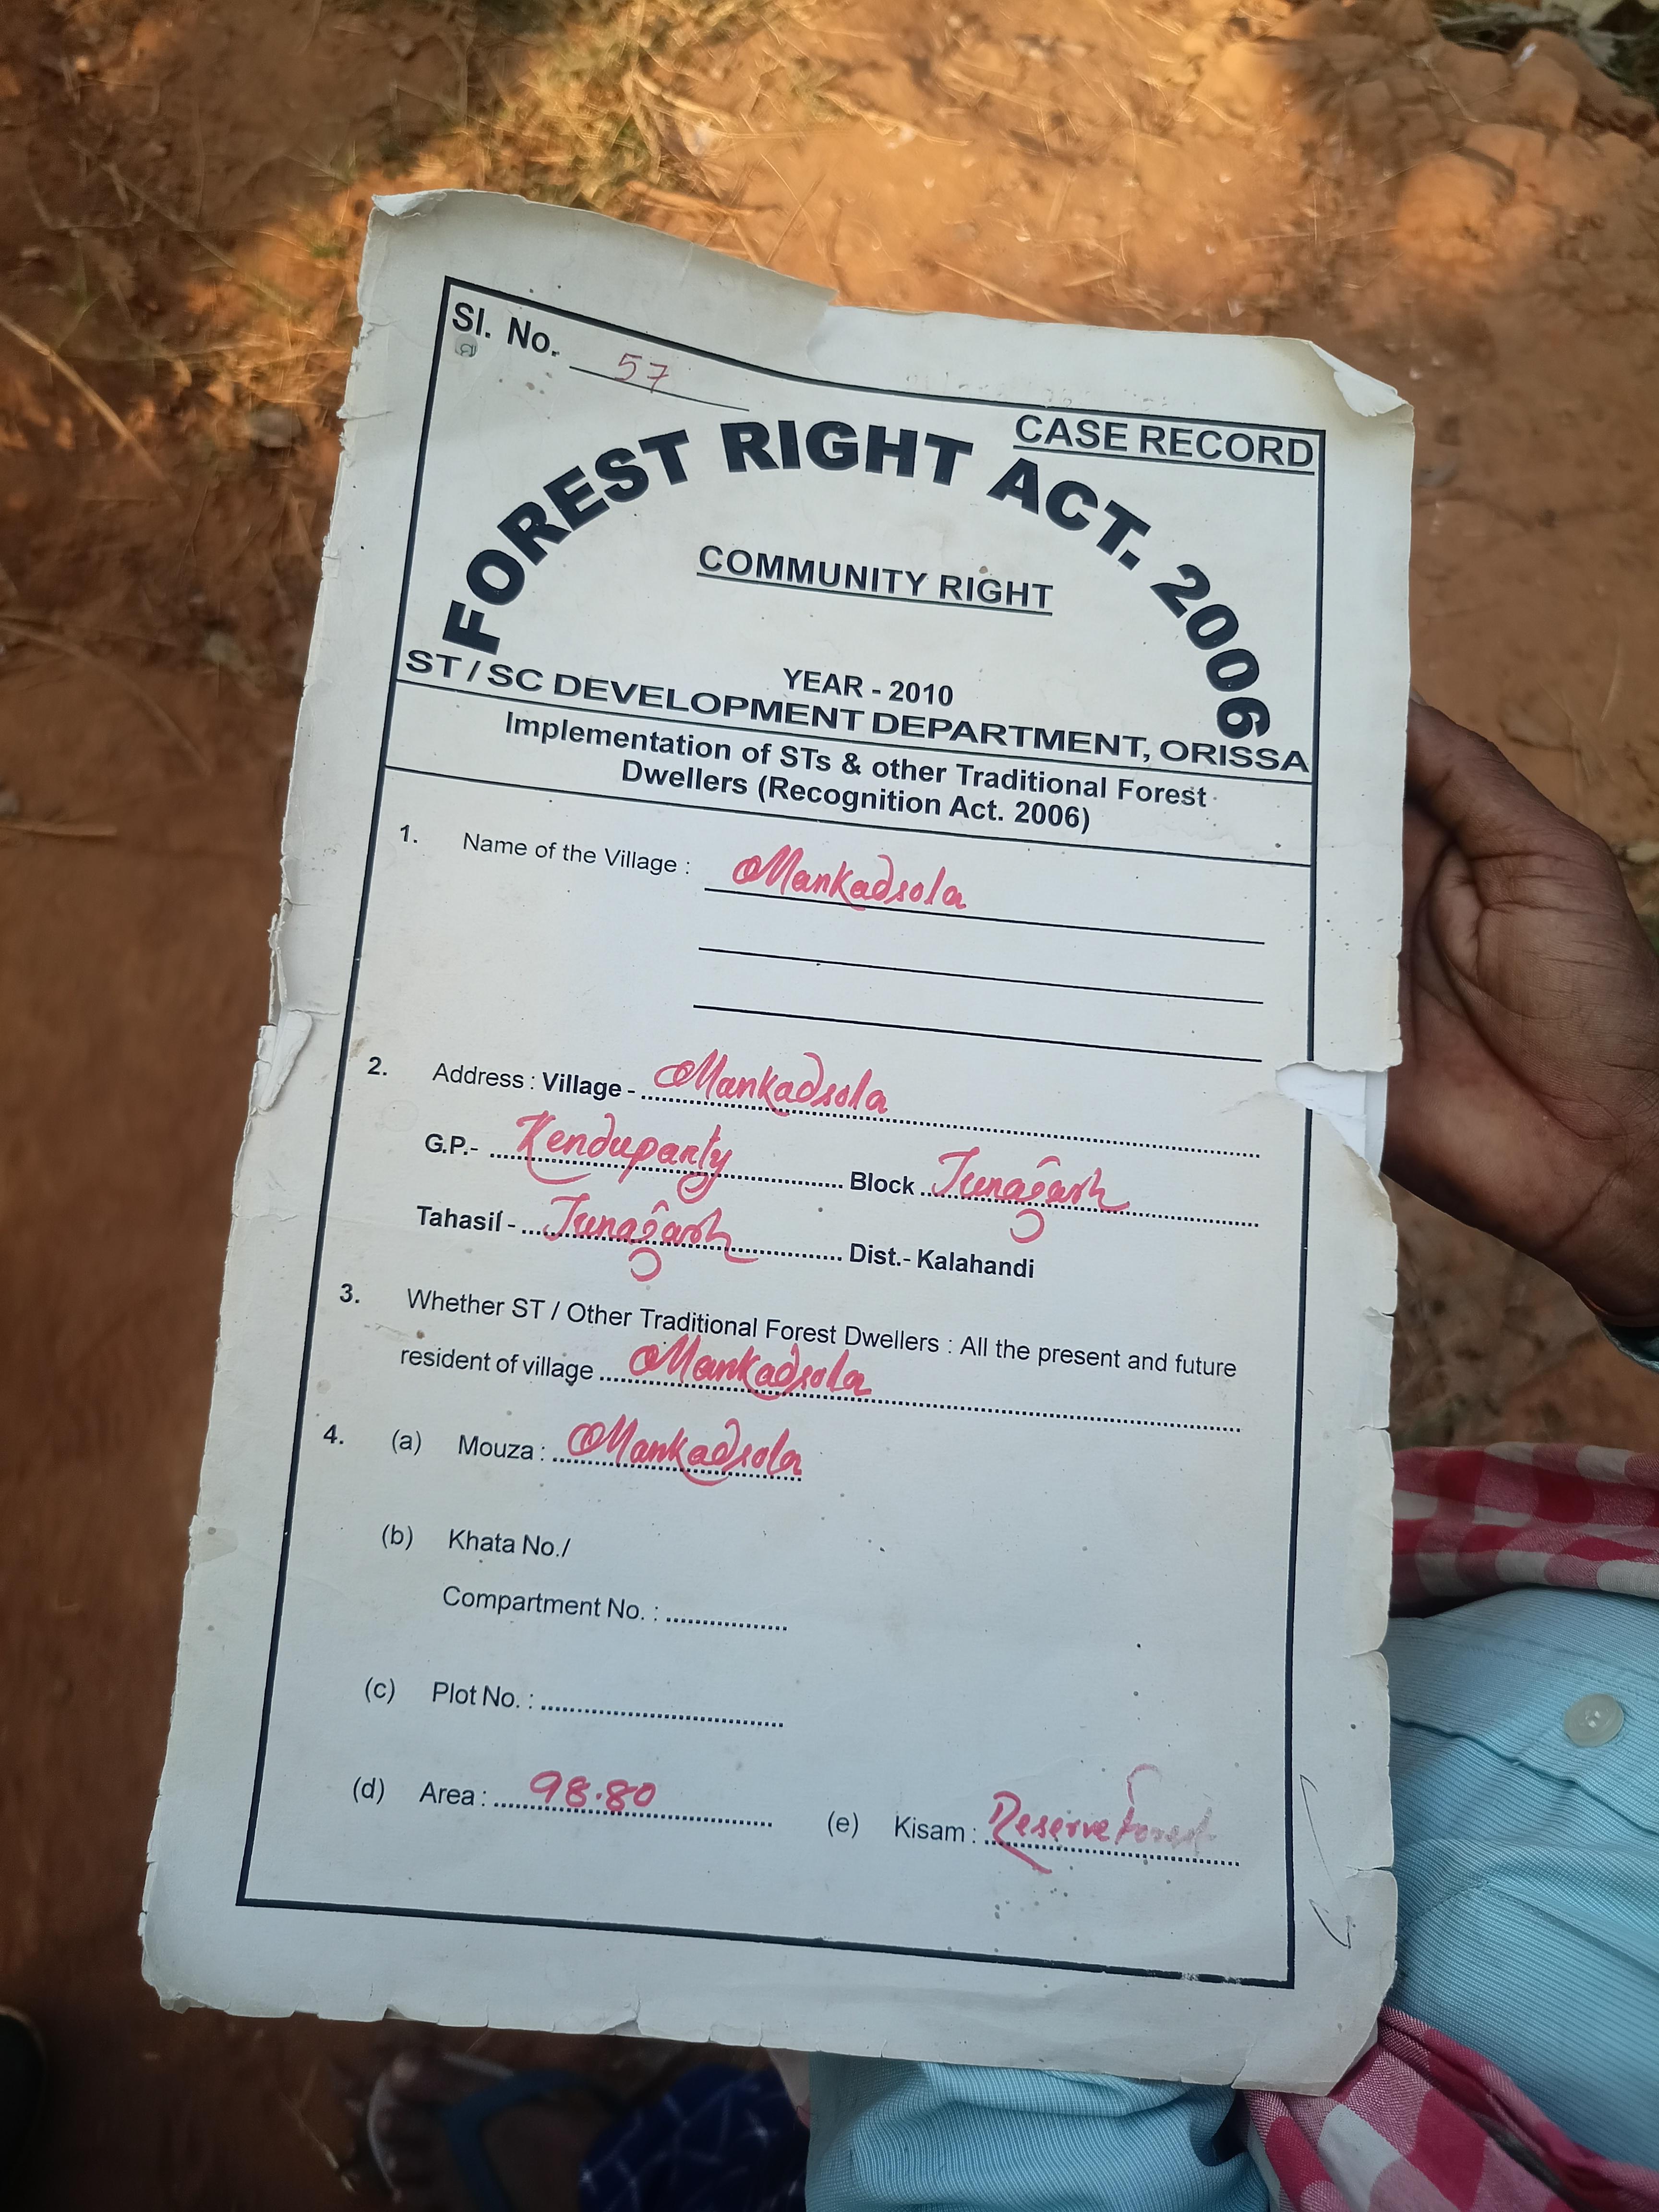 Sl. No. 57
CASE RECORD
FOREST RIGHT ACT. 2006
COMMUNITY RIGHT
YEAR - 2010
ST / SC DEVELOPMENT DEPARTMENT, ORISSA
Implementation of STs & other Traditional Forest
Dwellers (Recognition Act. 2006)
1. Name of the Village : Mankadsola
2. Address : Village - Mankadsola
G.P.- Kenduparty Block Junagarh
Tahasil - Junagarh Dist.- Kalahandi
3. Whether ST / Other Traditional Forest Dwellers : All the present and future
resident of village Mankadsola
4. (a) Mouza : Mankadsola
(b) Khata No./
Compartment No. :
(c) Plot No. :
(d) Area : 98.80 (e) Kisam : Reserve Forest